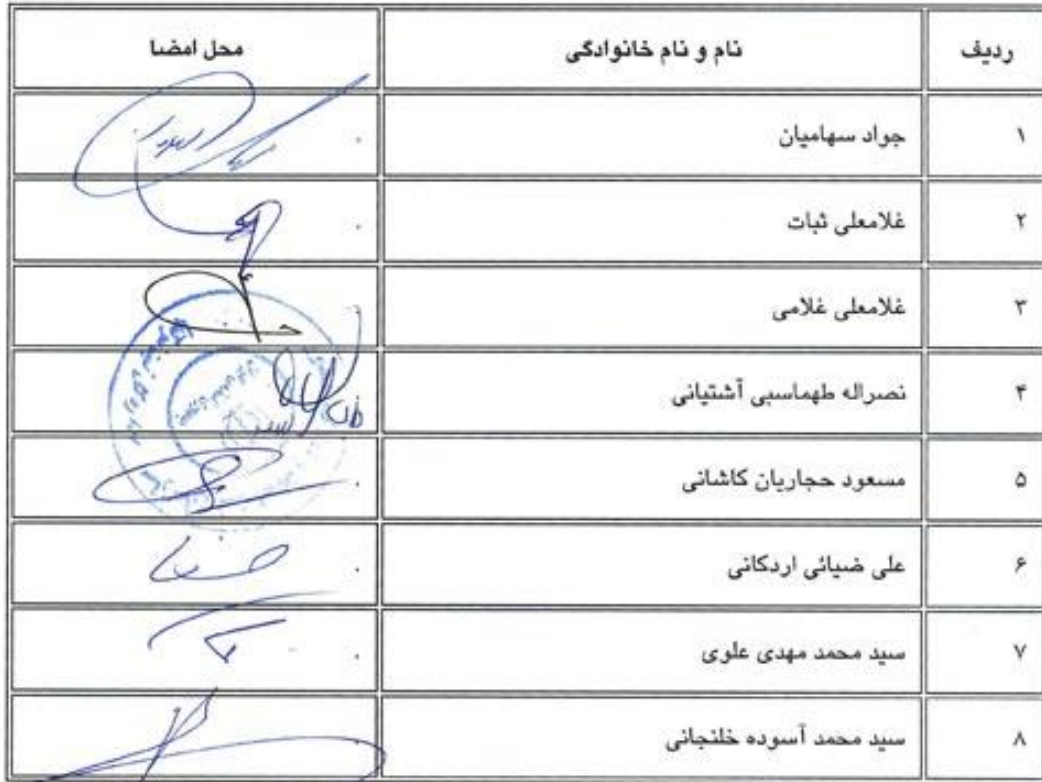 ردیف نام و نام خانوادگی محل امضا
۱ جواد سهامیان
۲ غلامعلی ثبات
۳ غلامعلی غلامی
۴ نصراله طهماسبی آشتیانی
۵ مسعود حجاریان کاشانی
۶ علی ضیائی اردکانی
۷ سید محمد مهدی علوی
۸ سید محمد آسوده خلنجانی